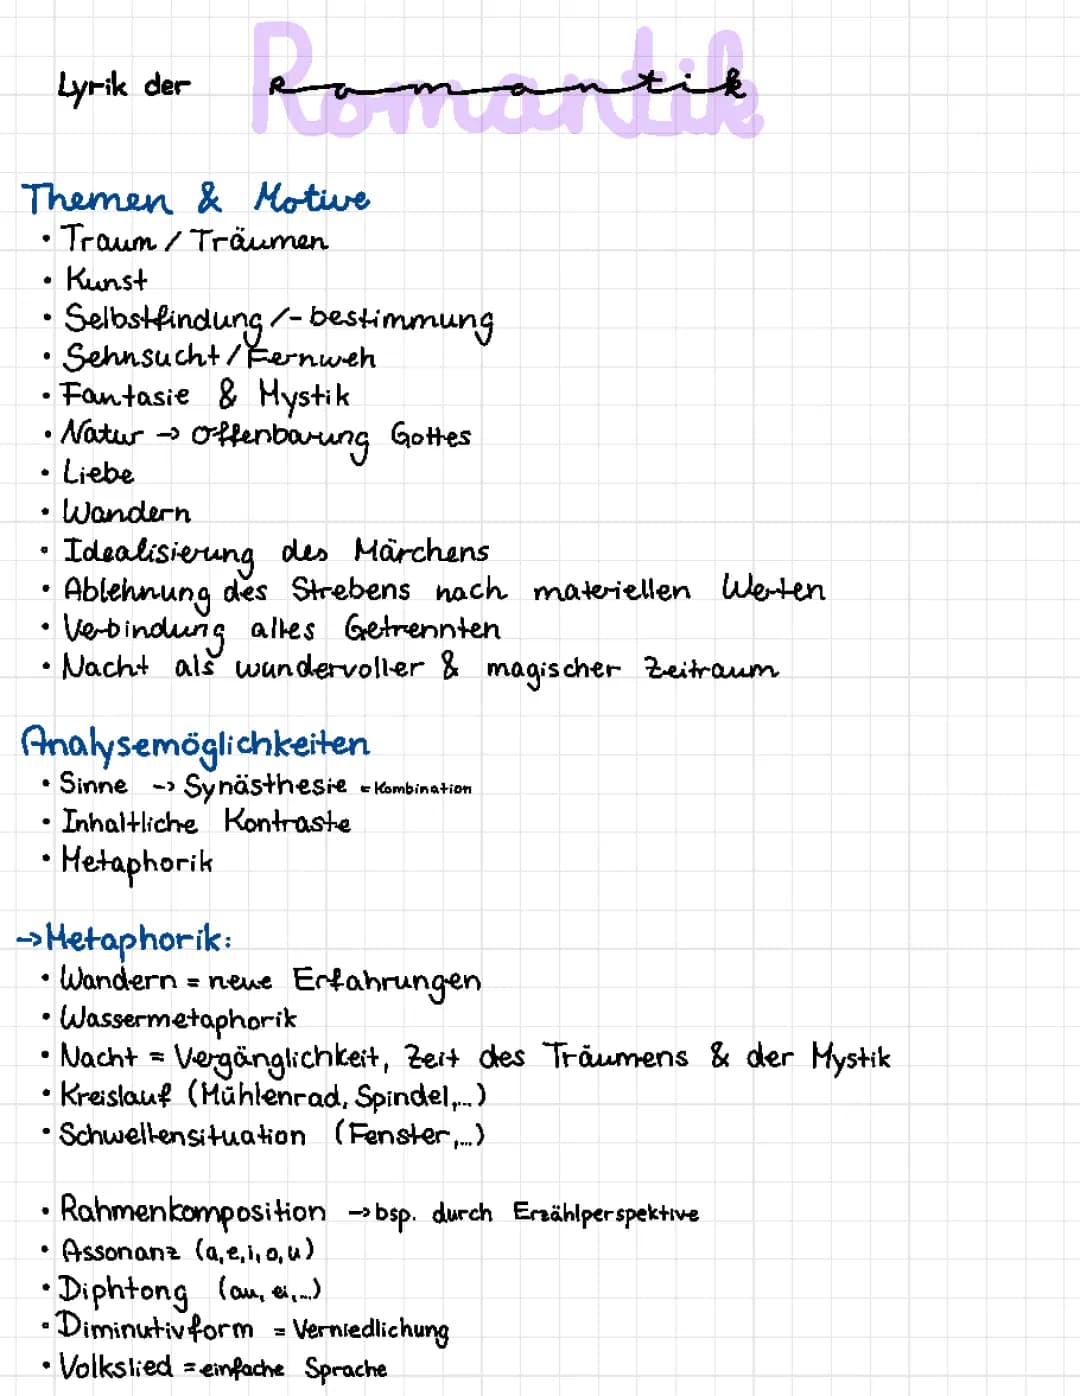 Lyrik der Romantik
Themen & Motive
• Traum / Träumen
• Kunst
• Selbstfindung /- bestimmung
• Sehnsucht / Fernweh
• Fantasie & Mystik
• Natur → Offenbarung Gottes
• Liebe
• Wandern
• Idealisierung des Märchens
• Ablehnung des Strebens nach materiellen Werten
• Verbindung alles Getrennten
• Nacht als wundervoller & magischer Zeitraum
Analysemöglichkeiten
• Sinne -> Synästhesie = Kombination
• Inhaltliche Kontraste
• Metaphorik
→ Metaphorik:
• Wandern = neue Erfahrungen
• Wassermetaphorik
• Nacht = Vergänglichkeit, Zeit des Träumens & der Mystik
• Kreislauf (Mühlenrad, Spindel,...)
• Schwellensituation (Fenster,...)
• Rahmenkomposition → bsp. durch Erzählperspektive
• Assonanz (a,e,i,o,u)
• Diphtong (au, ei,...)
• Diminutivform = Verniedlichung
• Volkslied = einfache Sprache